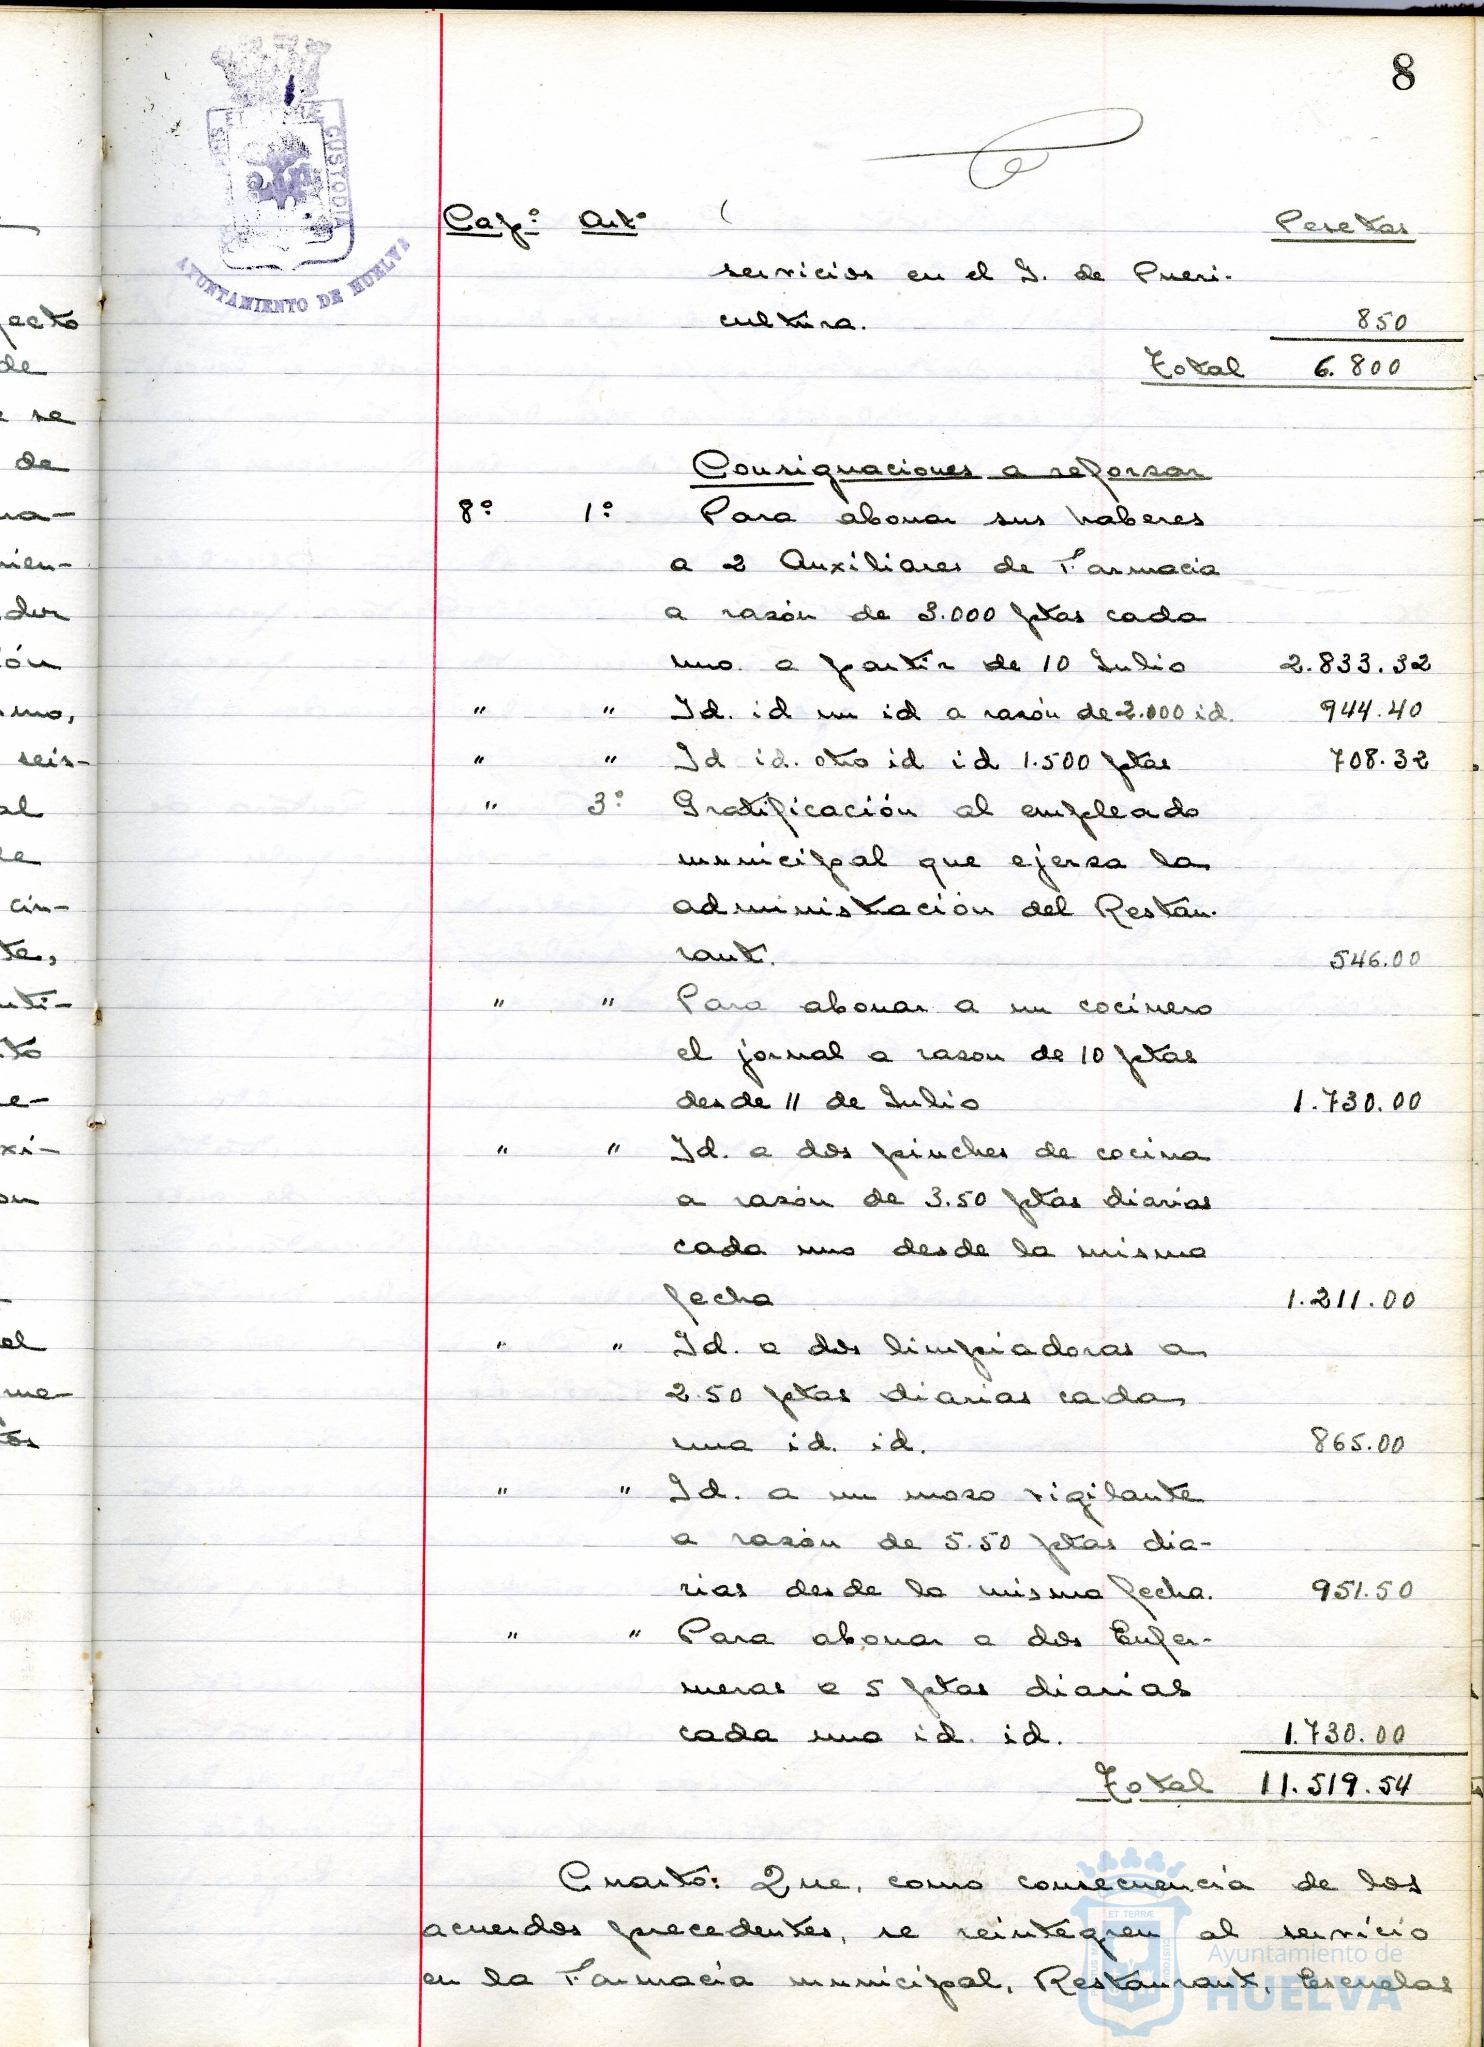 8
Cap.º Art.º Pesetas
servicios en el I. de Pueri-
cultura. 850
Total 6.800
Consignaciones a reforzar
8.º 1.º Para abonar sus haberes
a 2 Auxiliares de Farmacia
a razón de 3.000 ptas cada
uno a partir de 10 Julio 2.833.32
" " Id. id un id a razón de 2.000 id. 944.40
" " Id id. otro id id 1.500 ptas 708.32
" 3º Gratificación al empleado
municipal que ejerza la
administración del Restau-
rant. 546.00
" " Para abonar a un cocinero
el jornal a razon de 10 ptas
desde 11 de Julio 1.730.00
" " Id. a dos pinches de cocina
a razón de 3.50 ptas diarias
cada uno desde la misma
fecha 1.211.00
" " Id. a dos limpiadoras a
2.50 ptas diarias cada
una id. id. 865.00
" " Id. a un mozo vigilante
a razón de 5.50 ptas dia-
rias desde la misma fecha. 951.50
" " Para abonar a dos Enfer-
meras a 5 ptas diarias
cada una id. id. 1.730.00
Total 11.519.54
Cuarto: Que, como consecuencia de los
acuerdos precedentes, se reintegren al servicio
en la Farmacia municipal, Restaurant, Escuelas
CUSTODIA
AYUNTAMIENTO DE HUELVA
ET TERRÆ
Ayuntamiento de
HUELVA
pecto
de
e se
de
na-
mien-
dor
ión
smo,
seis-
al
cin-
te,
nti-
to
e-
xi-
on
el
me-
tos